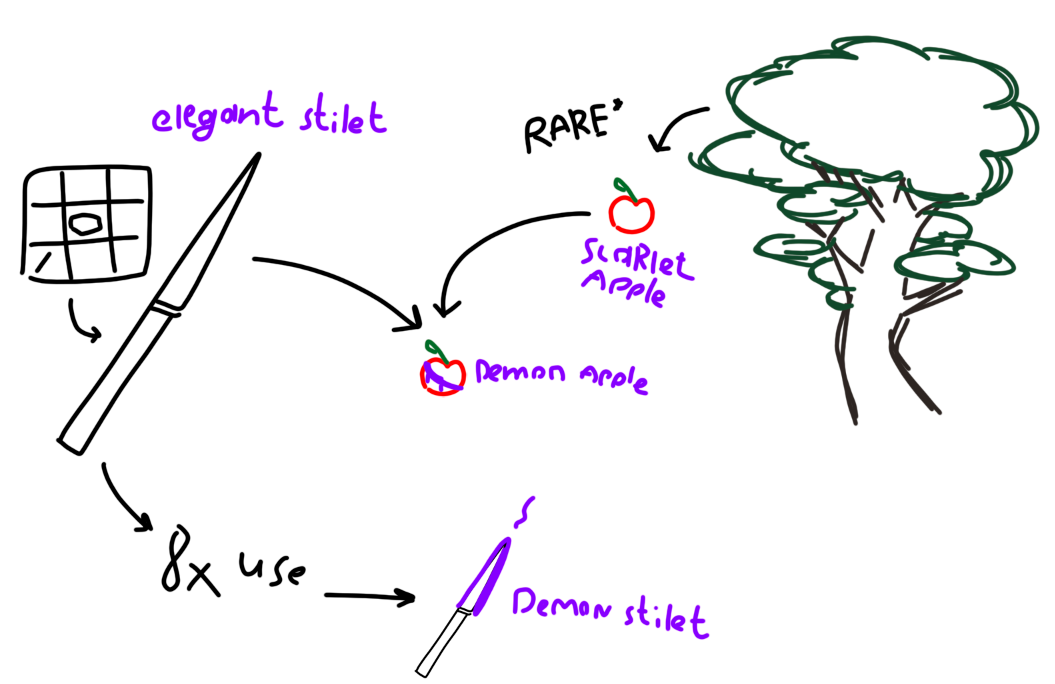 elegant stilet
RARE"
Scarlet
Apple
Demon Apple
8x use
Demon stilet